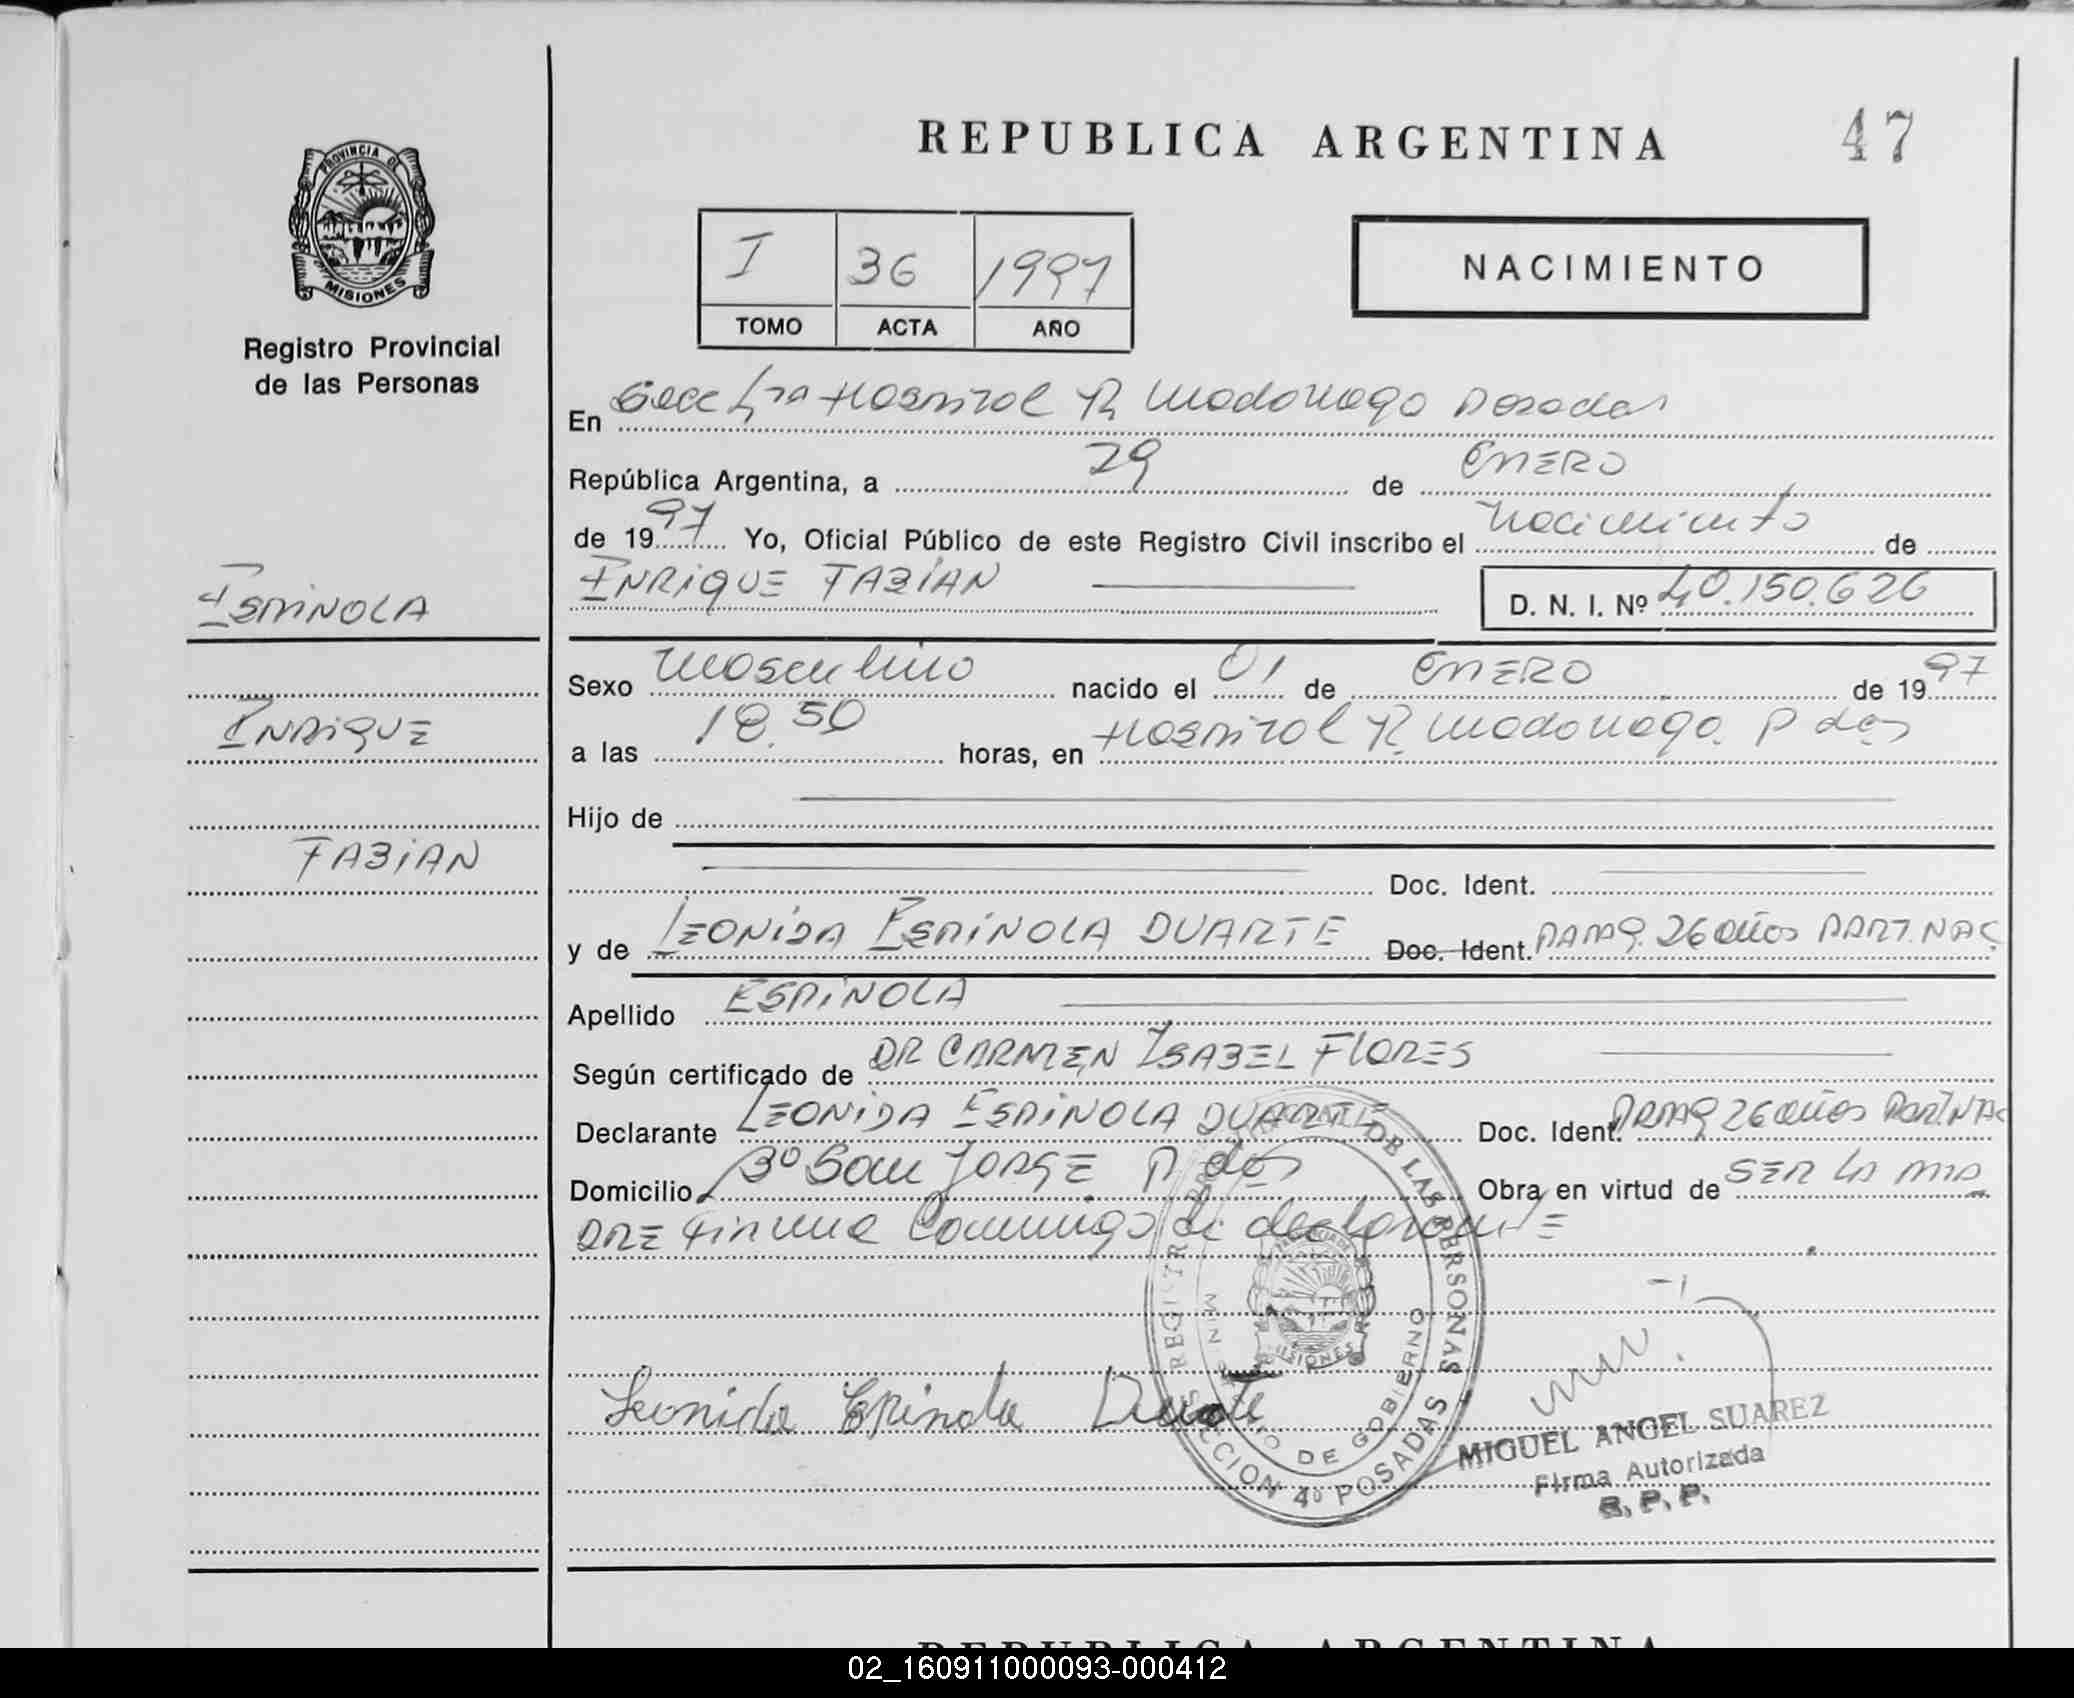 REPUBLICA ARGENTINA
47
PROVINCIA DE
MISIONES
Registro Provincial
de las Personas
I 36 1997
TOMO ACTA AÑO
NACIMIENTO
En Secc 4ta Hospital R Madariaga Posadas
República Argentina, a 29 de ENERO
de 1997 Yo, Oficial Público de este Registro Civil inscribo el Nacimiento de
ENRIQUE FABIAN
D. N. I. Nº 40.150.626
ESPINOLA
ENRIQUE
FABIAN
Sexo Masculino nacido el 01 de ENERO de 1997
a las 18.50 horas, en Hospital R. Madariaga. P das
Hijo de
Doc. Ident.
y de LEONIDA ESPINOLA DUARTE Doc. Ident. PARAG. 26 años PART. NAC
Apellido ESPINOLA
Según certificado de DR CARMEN ISABEL FLORES
Declarante LEONIDA ESPINOLA DUARTE Doc. Ident. PARAG 26 años PART.NAC
Domicilio Bº San JORGE P. das Obra en virtud de SER LA MA
DRE Firma Conmigo la declarante
Leonida Espinola Duarte
REGISTRO DE LAS PERSONAS
SECCION 4º POSADAS
DE GOBIERNO
MISIONES
MIGUEL ANGEL SUAREZ
Firma Autorizada
R. P. P.
REPUBLICA ARGENTINA
02_160911000093-000412